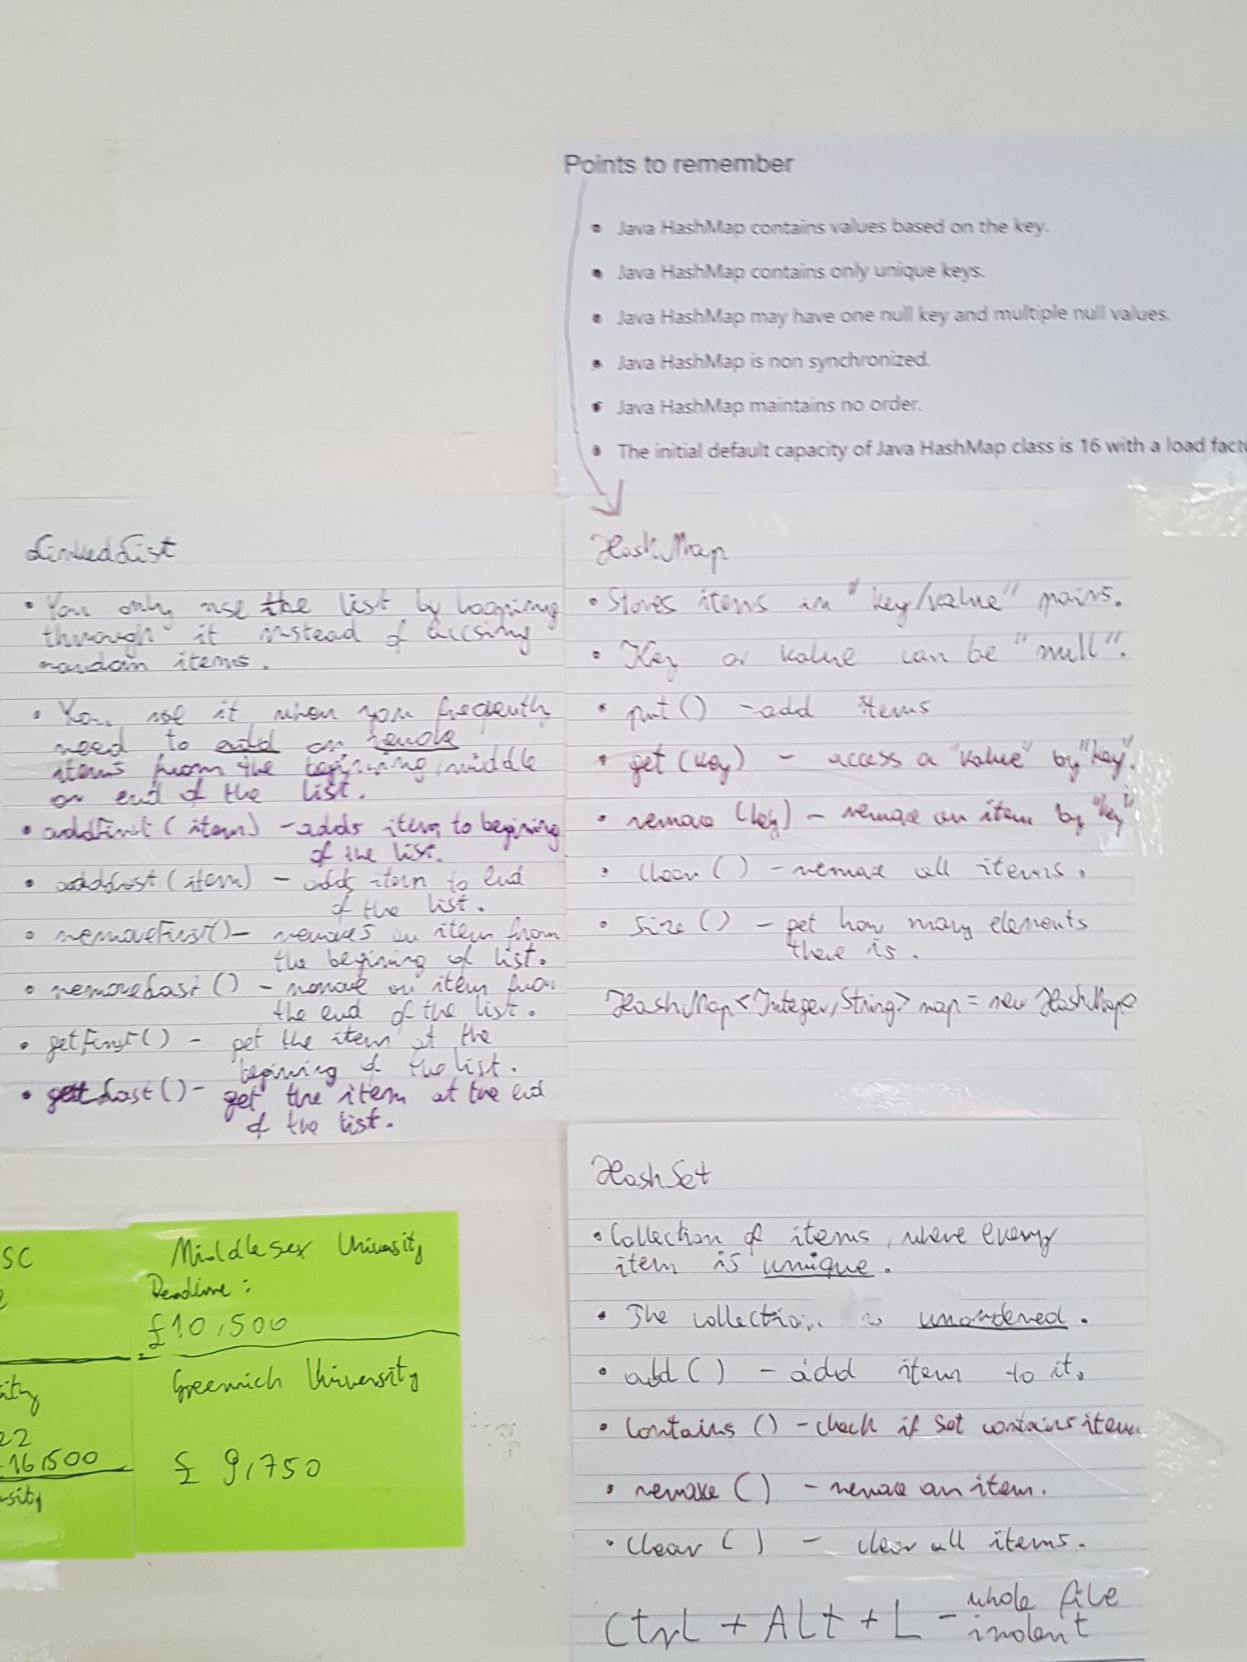 Points to remember
• Java HashMap contains values based on the key.
• Java HashMap contains only unique keys.
• Java HashMap may have one null key and multiple null values.
• Java HashMap is non synchronized.
• Java HashMap maintains no order.
• The initial default capacity of Java HashMap class is 16 with a load facto
LinkedList
• You only use the list by looping
through it instead of accsing
random items.
• You use it when you frequently
need to add or remove
items from the beginning, middle
or end of the list.
• addFirst (item) - adds item to begining
of the list.
• addLast (item) - adds item to end
of the list.
• removeFirst() - removes an item from
the begining of list.
• removeLast () - remove an item from
the end of the list.
• getFirst () - get the item at the
begining of the list.
• getLast () - get the item at the end
of the list.
HashMap
• Stores items in "key/value" pairs.
• Key or value can be "null".
• put () - add items
• get (key) - access a "value" by "key".
• remove (key) - remove an item by "key"
• clear () - remove all items.
• size () - get how many elements
there is.
HashMap<Integer, String> map = new HashMap<
HashSet
• Collection of items, where every
item is unique.
• The collection is unordered.
• add () - add item to it.
• contains () - check if set contains item
• remove () - remove an item.
• clear () - clear all items.
Ctrl + ALt + L - whole file
indent
SC
sity
22
16,500
sity
Middlesex University
Deadline :
£10,500
Greenwich University
£ 9,750